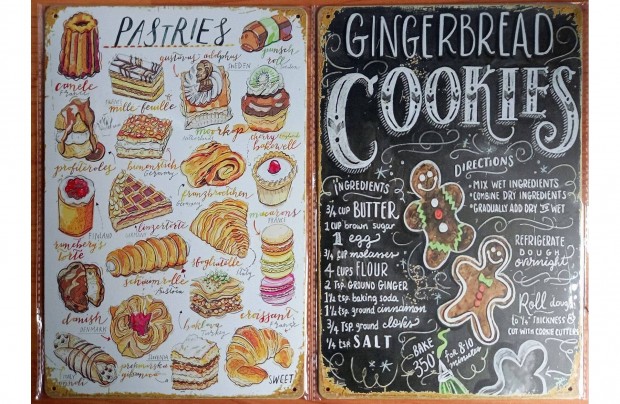 PASTRIES
gustavus adolphus
SWEDEN
punsch
roll
canelé
FRANCE
mille-feuille
moorkop
cherry
bakewell
profiteroles
bienenstich
Germany
franzbroetchen
Germany
linzertorte
FINLAND
runeberg's
torte
macarons
France
sfogliatelle
Italy
schaumrolle
Austria
danish
DENMARK
baklava
Turkey
croissant
France
SLOVENIA
prekmurska
gibanica
ITALY
SWEET
GINGERBREAD
COOKIES
INGREDIENTS
3/4 CUP BUTTER
1 CUP brown sugar
1 egg
3/4 CUP molasses
4 CUPS FLOUR
2 TSP GROUND GINGER
1 1/2 tsp baking soda
1 1/2 tsp ground cinnamon
3/4 TSP ground cloves
1/4 tsp SALT
DIRECTIONS
• MIX WET INGREDIENTS
• COMBINE DRY INGREDIENTS
• GRADUALLY ADD DRY TO WET
REFRIGERATE
DOUGH
overnight
Roll dough
to 1/4" THICKNESS &
CUT WITH COOKIE CUTTERS
BAKE
350° for 8-10
minutes